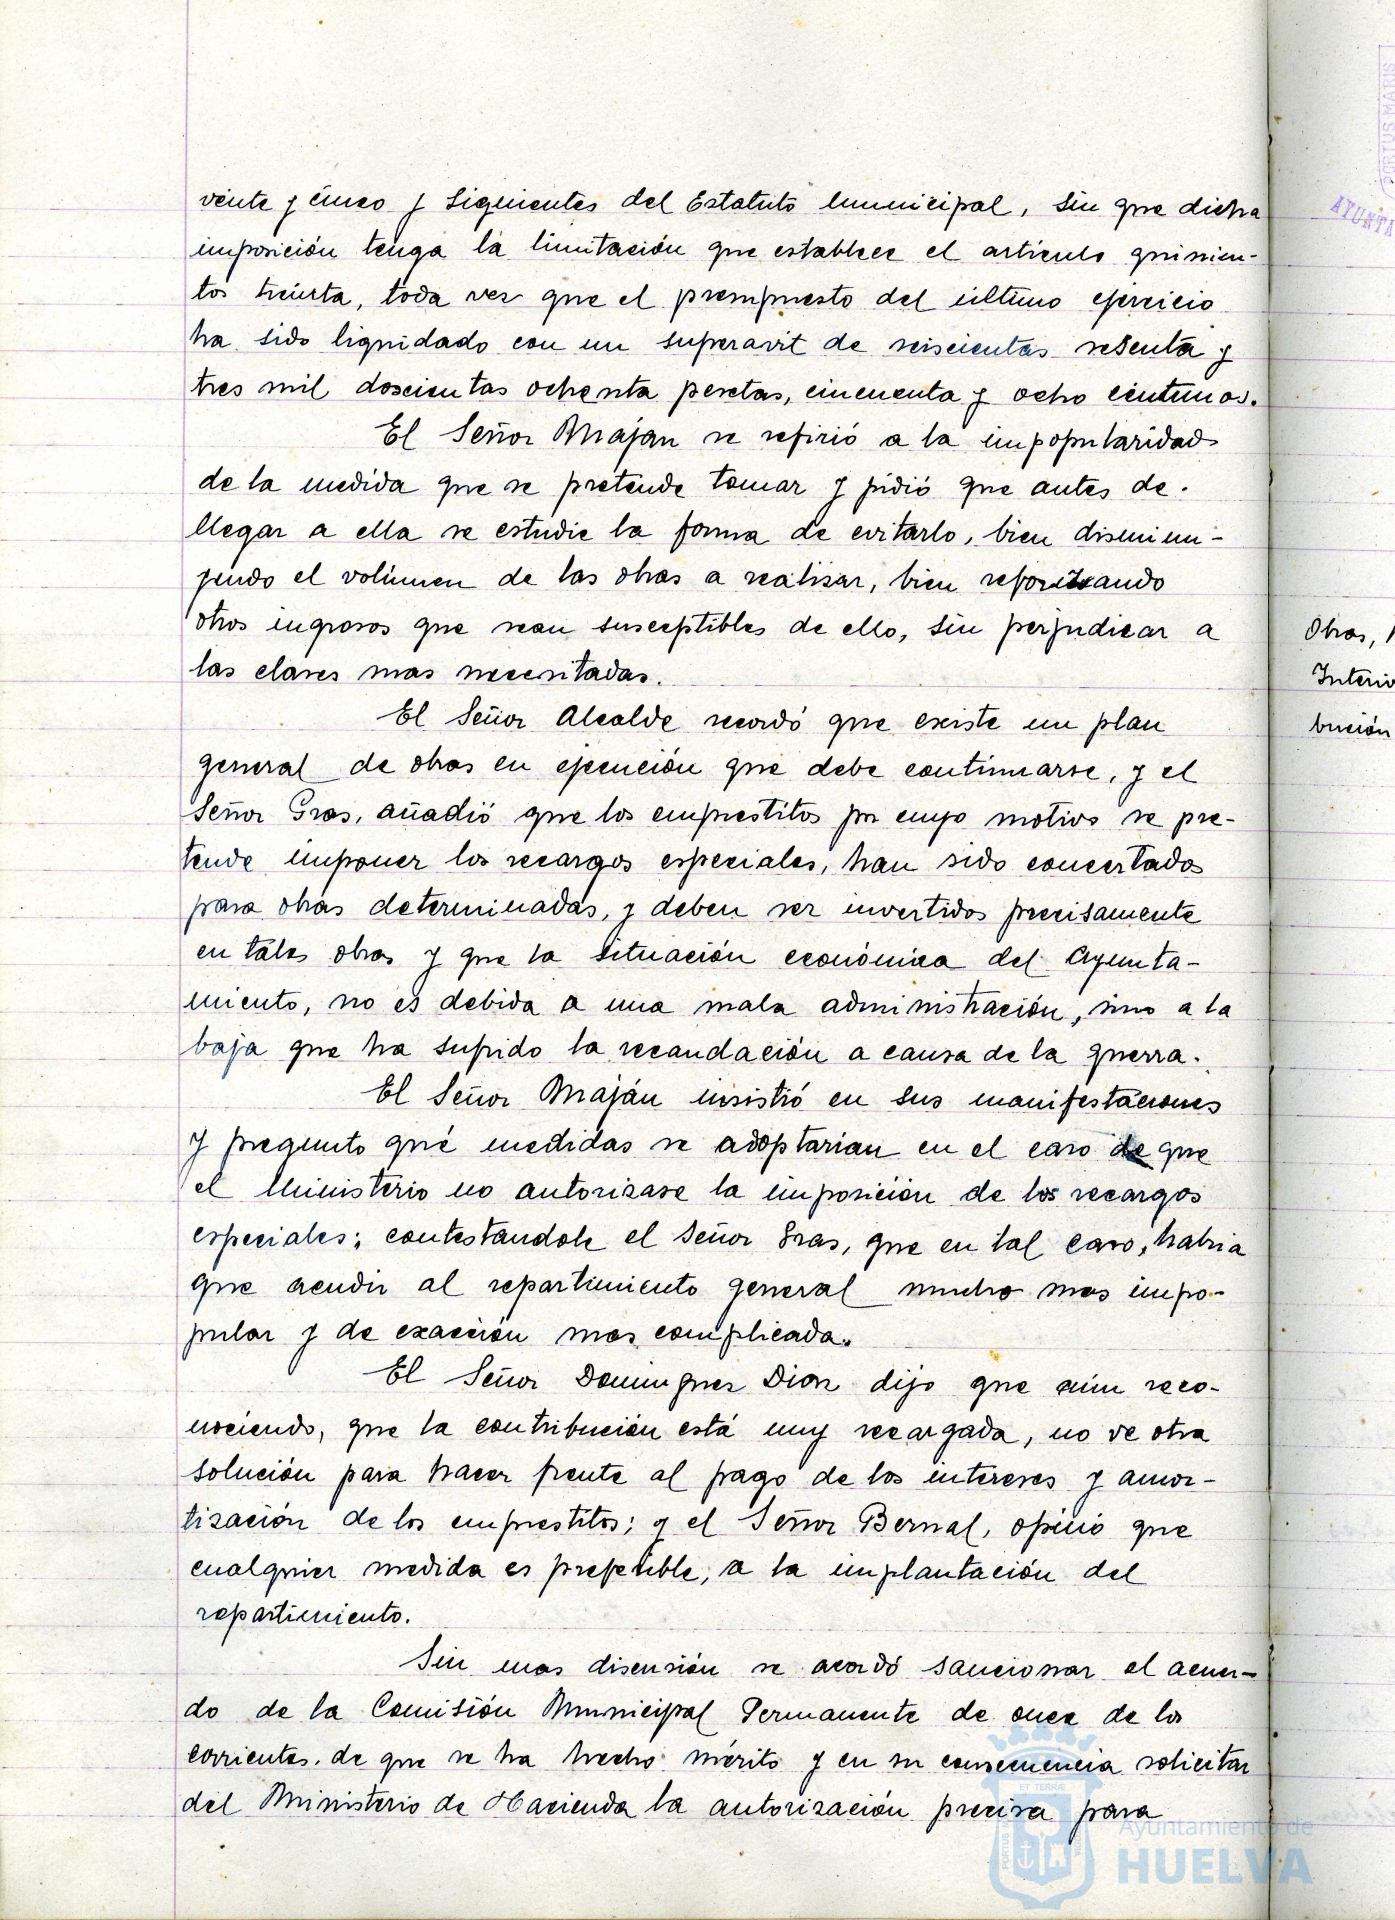 veinte y cinco y siguientes del Estatuto municipal, sin que dicha
imposición tenga la limitación que establece el artículo quinien-
tos treinta, toda vez que el presupuesto del último ejercicio
ha sido liquidado con un superavit de seiscientas sesenta y
tres mil doscientas ochenta pesetas, cincuenta y ocho céntimos.
El Señor Maján se refirió a la impopularidad
de la medida que se pretende tomar y pidió que antes de
llegar a ella se estudie la forma de evitarlo, bien disminu-
yendo el volúmen de las obras a realizar, bien reforzando
otros ingresos que sean susceptibles de ello, sin perjudicar a
las clases mas necesitadas.
El Señor Alcalde recordó que existe un plan
general de obras en ejecución que debe continuarse, y el
Señor Gras, añadió que los empréstitos por cuyo motivo se pre-
tende imponer los recargos especiales, han sido concertados
para obras determinadas, y deben ser invertidos precisamente
en tales obras y que la situación económica del Ayunta-
miento, no es debida a una mala administración, sino a la
baja que ha sufrido la recaudación a causa de la guerra.
El Señor Maján insistió en sus manifestaciones
y pregunto qué medidas se adoptarian en el caso de que
el Ministerio no autorizase la imposición de los recargos
especiales; contestandole el Señor Gras, que en tal caso, habria
que acudir al repartimiento general mucho mas impo-
pular y de exacción mas complicada.
El Señor Dominguez Diaz dijo que aún reco-
nociendo, que la contribución está muy recargada, no ve otra
solución para hacer frente al pago de los intereses y amor-
tización de los emprestitos; y el Señor Bernal, opinó que
cualquier medida es preferible, a la implantación del
repartimiento.
Sin mas discusión se acordó sancionar el acuer-
do de la Comisión Municipal Permanente de once de los
corrientes, de que se ha hecho mérito y en su consecuencia solicitar
del Ministerio de Hacienda la autorización precisa para
Obras,
Interio
bución
PORTUS MARIS
AYUNTA
ET TERRÆ
Ayuntamiento de
HUELVA